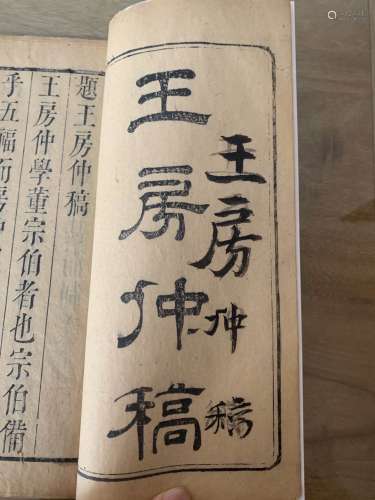 王房仲稿
王房仲稿
題王房仲稿
王房仲學董宗伯者也宗伯備
乎五福而房仲